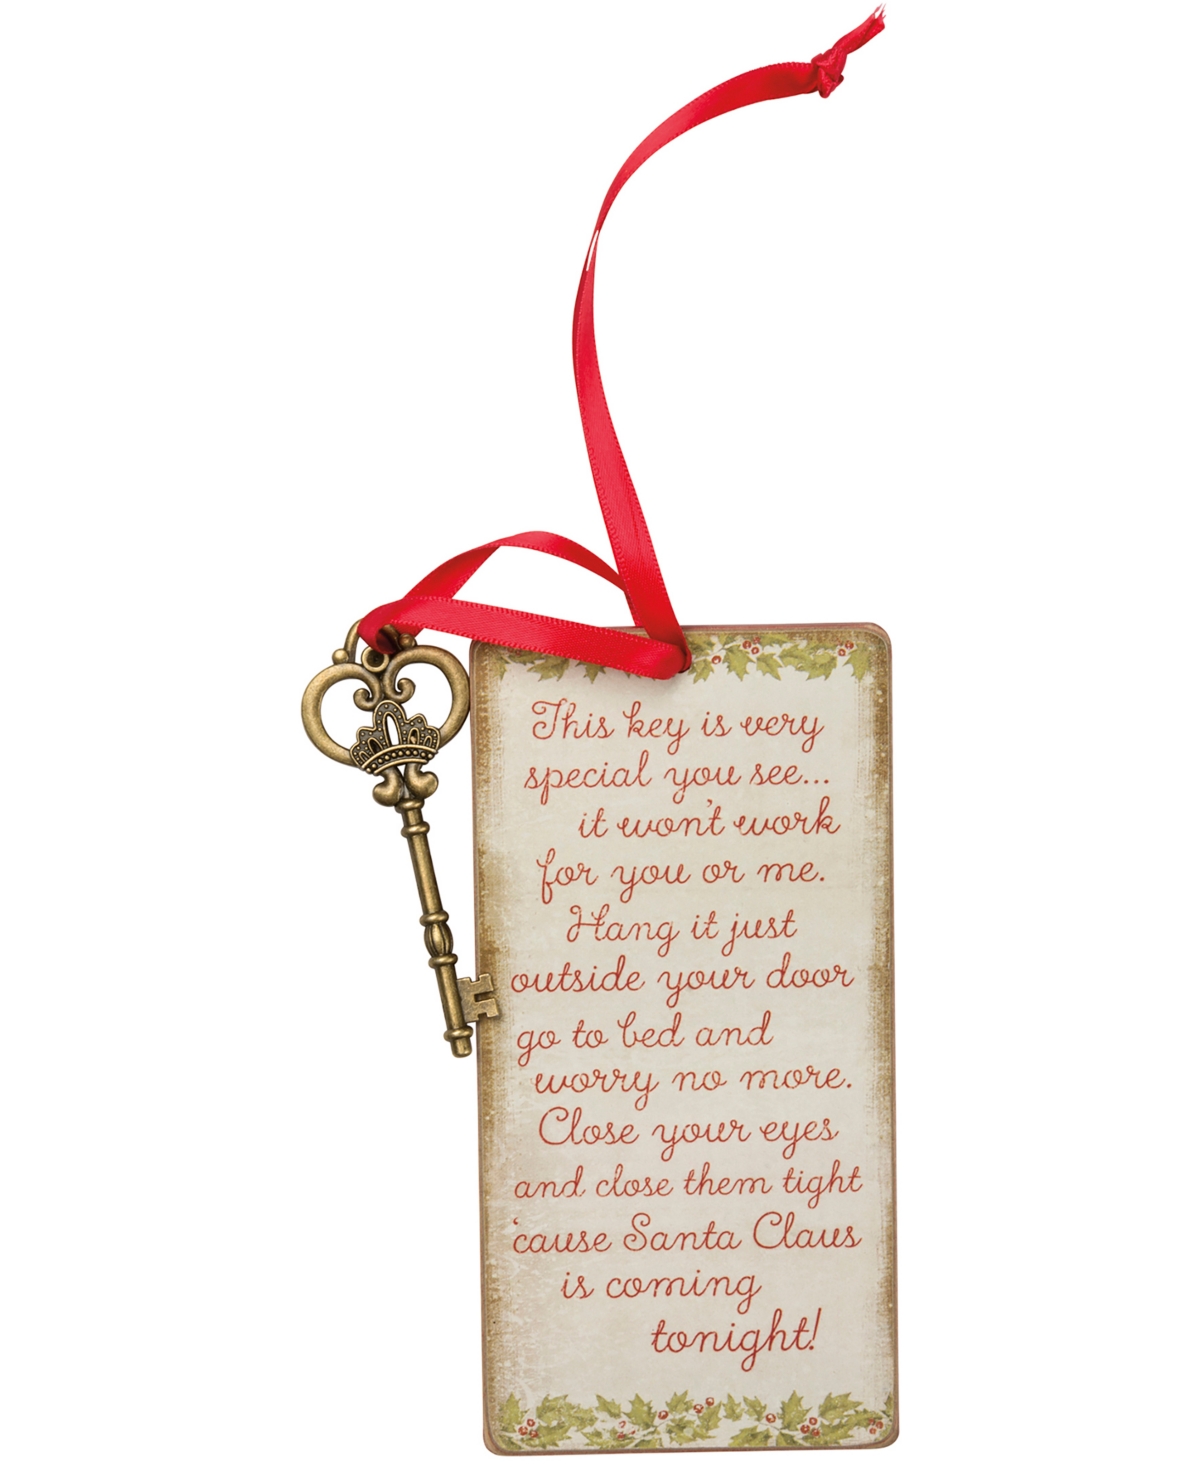 This key is very
special you see...
it won't work
for you or me.
Hang it just
outside your door
go to bed and
worry no more.
Close your eyes
and close them tight
'cause Santa Claus
is coming
tonight!